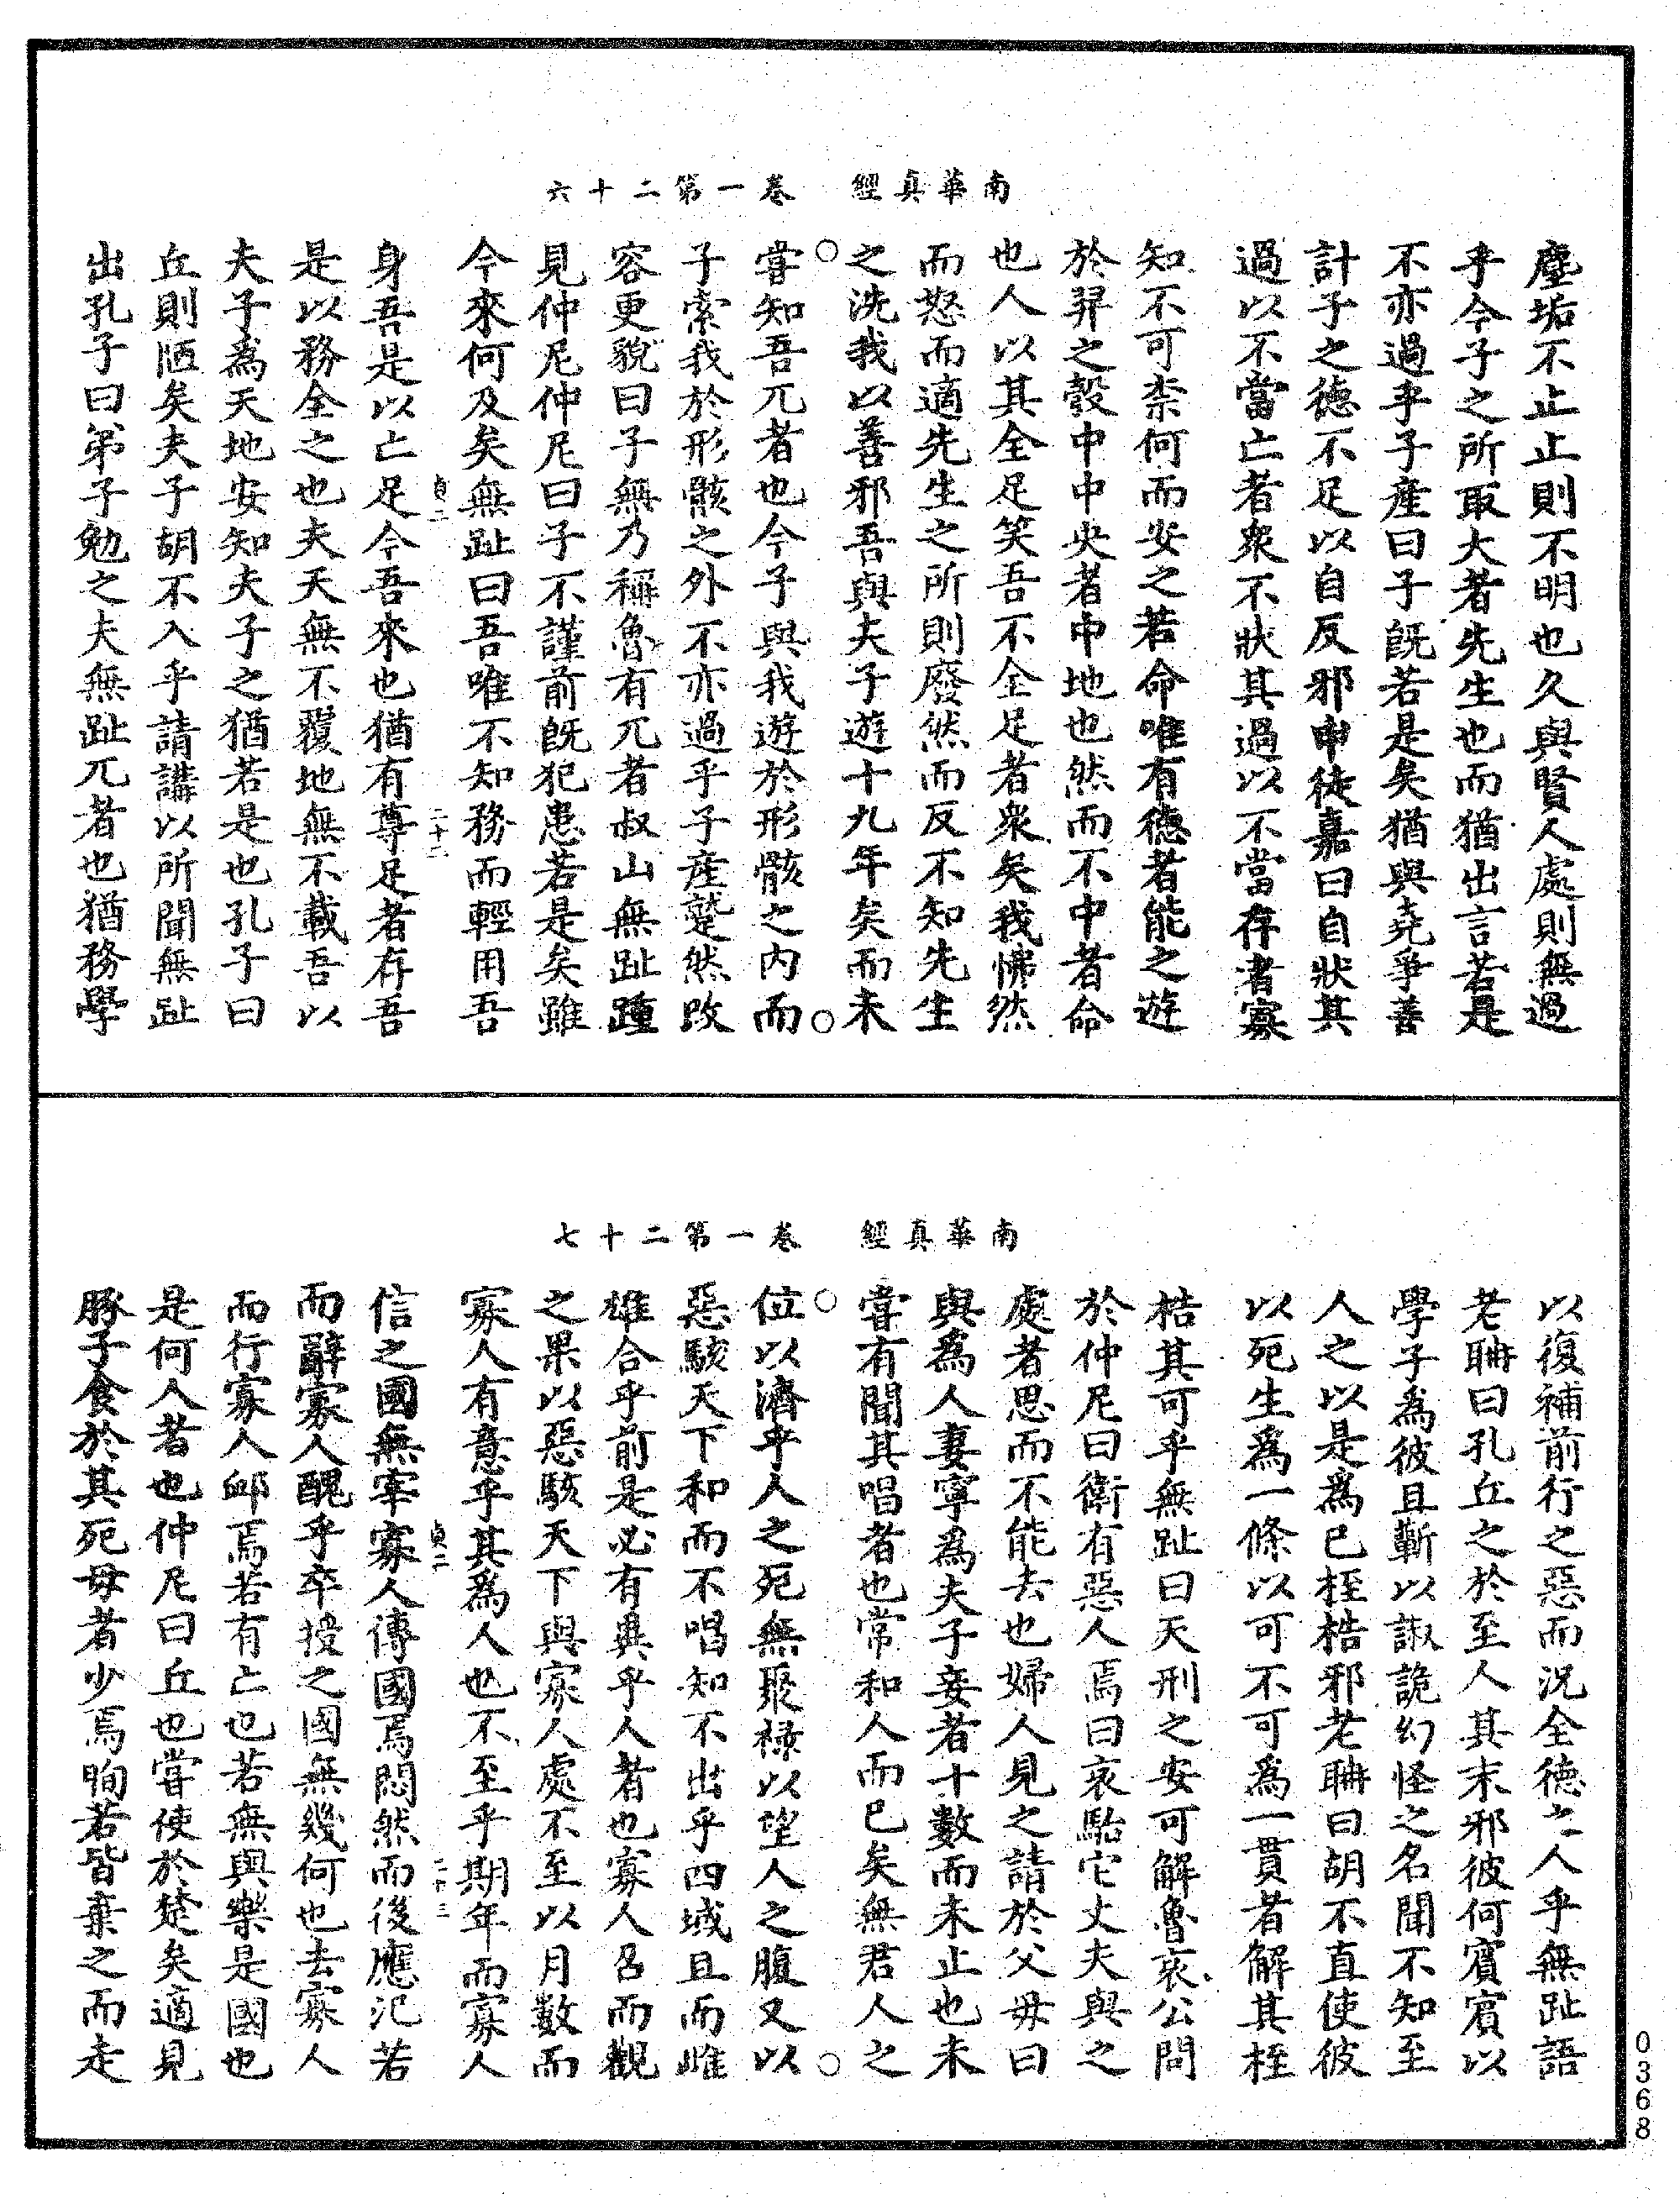 南華真經　卷一第二十六
塵垢不止止則不明也久與賢人處則無過
乎今子之所取大者先生也而猶出言若是
不亦過乎子產曰子既若是矣猶與堯爭善
計子之德不足以自反邪申徒嘉曰自狀其
過以不當亡者衆不狀其過以不當存者寡
知不可柰何而安之若命唯有德者能之遊
於羿之彀中中央者中地也然而不中者命
也人以其全足笑吾不全足者衆矣我怫然
而怒而適先生之所則廢然而反不知先生
之洗我以善邪吾與夫子遊十九年矣而未
嘗知吾兀者也今子與我遊於形骸之內而
子索我於形骸之外不亦過乎子產蹵然改
容更貌曰子無乃稱魯有兀者叔山無趾踵
見仲尼仲尼曰子不謹前既犯患若是矣雖
今來何及矣無趾曰吾唯不知務而輕用吾
貞二　二十二
身吾是以亡足今吾來也猶有尊足者存吾
是以務全之也夫天無不覆地無不載吾以
夫子爲天地安知夫子之猶若是也孔子曰
丘則陋矣夫子胡不入乎請講以所聞無趾
出孔子曰弟子勉之夫無趾兀者也猶務學
南華真經　卷一第二十七
以復補前行之惡而況全德之人乎無趾語
老聃曰孔丘之於至人其未邪彼何賓賓以
學子爲彼且蘄以諔詭幻怪之名聞不知至
人之以是爲已桎梏邪老聃曰胡不直使彼
以死生爲一條以可不可爲一貫者解其桎
梏其可乎無趾曰天刑之安可解魯哀公問
於仲尼曰衛有惡人焉曰哀駘它丈夫與之
處者思而不能去也婦人見之請於父母曰
與爲人妻寧爲夫子妾者十數而未止也未
嘗有聞其唱者也常和人而已矣無君人之
位以濟乎人之死無聚祿以望人之腹又以
惡駭天下和而不唱知不出乎四域且而雌
雄合乎前是必有異乎人者也寡人召而觀
之果以惡駭天下與寡人處不至以月數而
寡人有意乎其爲人也不至乎期年而寡人
貞二　二十三
信之國無宰寡人傳國焉悶然而後應氾若
而辭寡人醜乎卒授之國無幾何也去寡人
而行寡人卹焉若有亡也若無與樂是國也
是何人者也仲尼曰丘也嘗使於楚矣適見
豚子食於其死母者少焉眴若皆棄之而走
0368